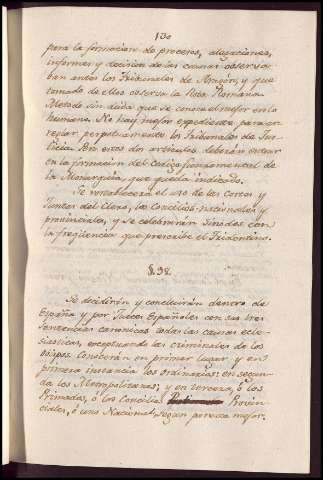 130
para la formacion de procesos, alegaciones,
informes y decision de las causas observa-
ban antes los Tribunales de Aragón, y que
tomado de ellos observa la Rota Romana.
Metodo sin duda que se conoce el mejor en lo
humano. No hay mejor expediente para ar-
reglar perpetuamente los Tribunales de Jus-
ticia. Pon estos dos articulos deberán entrar
en la formacion del Codigo fundamental de
la Monarquia, que queda indicado.
Se restablecerá el uso de las cortes y
Juntas del Clero, los Concilios nacionales y
provinciales, y se celebrarán Sinodos con
la freqüencia que prescribe el Tridentino.
§. 98.
Se decidirán y concluirán dentro de
España y por Jueces Españoles con sus tres
sentencias canonicas todas las causas ecle-
siasticas, exceptuando las criminales de los
obispos. Conocerán en primer lugar y en
primera instancia los ordinarios: en segun-
da los Metropolitanos; y en tercera, ó los
Primados, ó los Concilios Provin-
ciales, ó uno Nacional, segun parezca mejor.